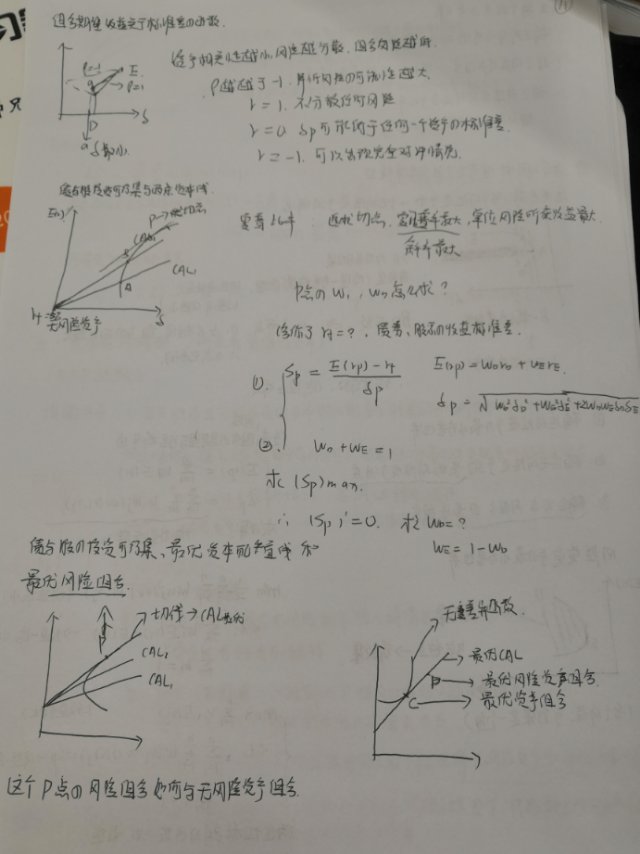 组合期望收益关于标准差的函数.
ρ=-1
E
ρ=1
D
δ
δ最小
资产相关性越小,风险越分散.组合有效越好.
ρ越趋于-1,降低风险的可能性越大
r=1. 不分散任何风险
r=0 δp可能低于任何一个资产的标准差.
r=-1. 可以出现完全对冲情况.
债与股投资可行集与两条资本线.
E(r)
P→
CAL₂
CAL₁
B
A
rf
无风险资产
δ
夏普比率:
切点,
率最大,单位风险所获收益最大.
斜率最大
P点的W₁,W₂怎么求?
给你了rf=?,债券、股票的收益标准差.
①. Sp = E(rp)-rf / δp
E(rp)=WDrD+WErE.
δp=√WD²δD²+WE²δE²+2WDWEδDδE
②. WD+WE=1
求(Sp)max.
∴(Sp)'=0. 求WD=?
WE=1-WD
债与股的投资可行集、最优资本配置线和
最优风险组合.
P
切线→CAL最优
CAL₂
CAL₁
无差异函数.
→最优CAL
P
→最优风险资产组合.
C
→最优资产组合
这个P点的风险组合 与无风险资产组合.